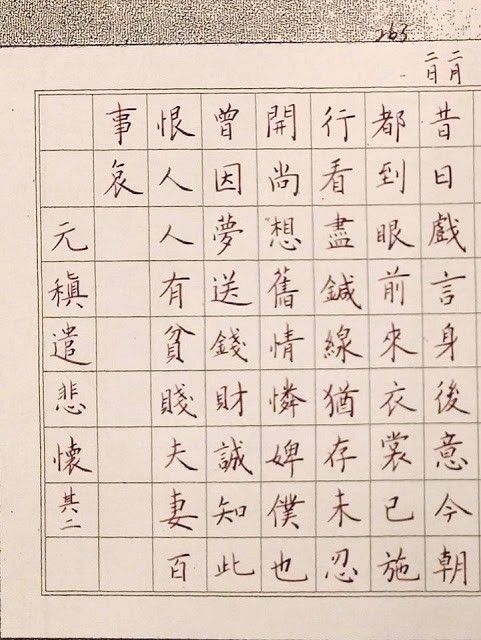 265
二月
二日
昔日戲言身後意今朝
都到眼前來衣裳已施
行看盡鍼線猶存未忍
開尚想舊情憐婢僕也
曾因夢送錢財誠知此
恨人人有貧賤夫妻百
事哀
元稹遣悲懷其二